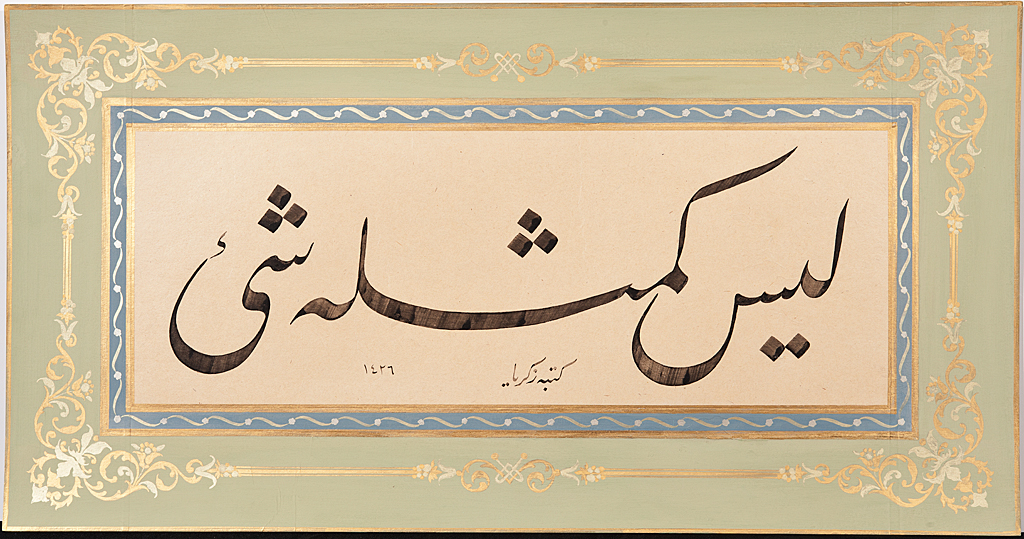 ليس كمثله شئ
كتبه زكريا
١٤٢٦